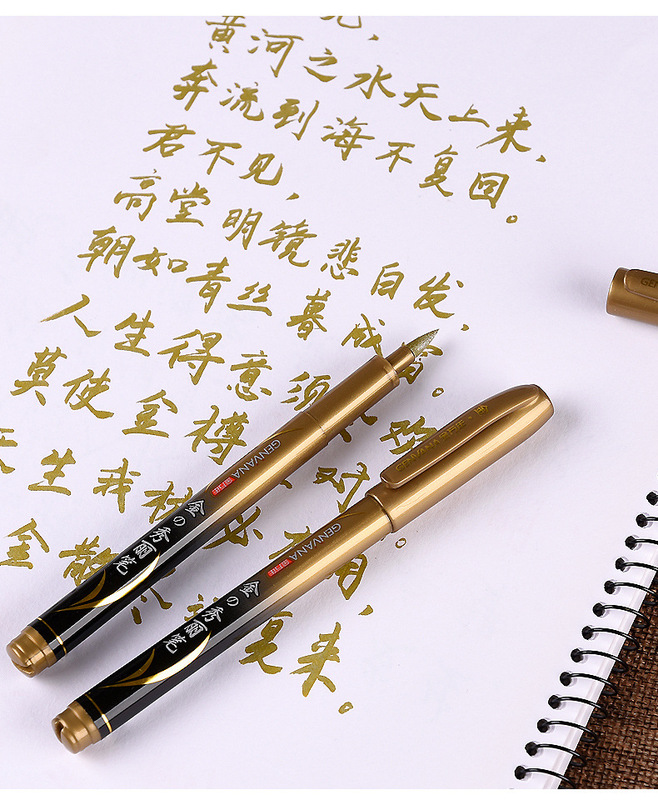 见,
黄河之水天上来,
奔流到海不复回。
君不见,
高堂明镜悲白发,
朝如青丝暮成
人生得意须
莫使金樽 对
天生我材必有用,
金散尽 复来。
GENVANA
金の秀丽笔
GENVANA
GENVANA
金の秀丽笔